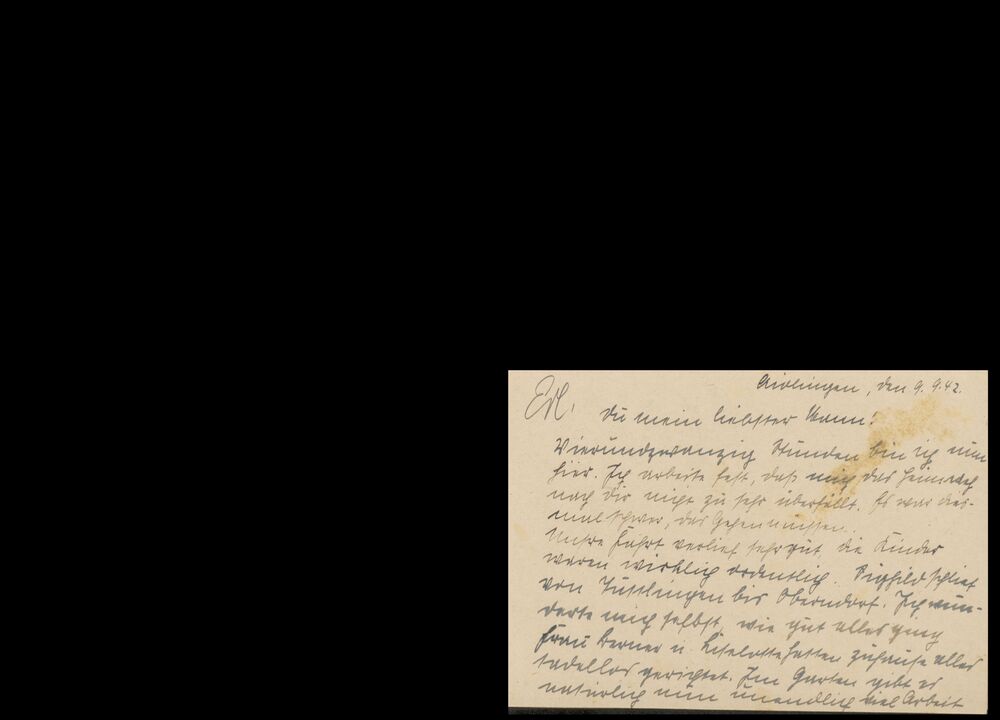 Erl.
Aixlingen, den 9. 9. 42.
Du mein liebster Mann!
Vierundzwanzig Stunden bin ich nun
hier. Ich arbeite fest, daß mich das Heimweh
nach dir nicht zu sehr überfällt. Es war dies-
mal schwer, das Gehen müssen.
Unsre Fahrt verlief sehr gut, die Kinder
waren wirklich ordentlich. Sighild schlief
von Tuttlingen bis Oberndorf. Ich wun-
derte mich selbst, wie gut alles ging
Frau u. Liselotte hatten zuhause alles
tadellos gerichtet. Im Garten gibt es
natürlich nun unendlich viel Arbeit